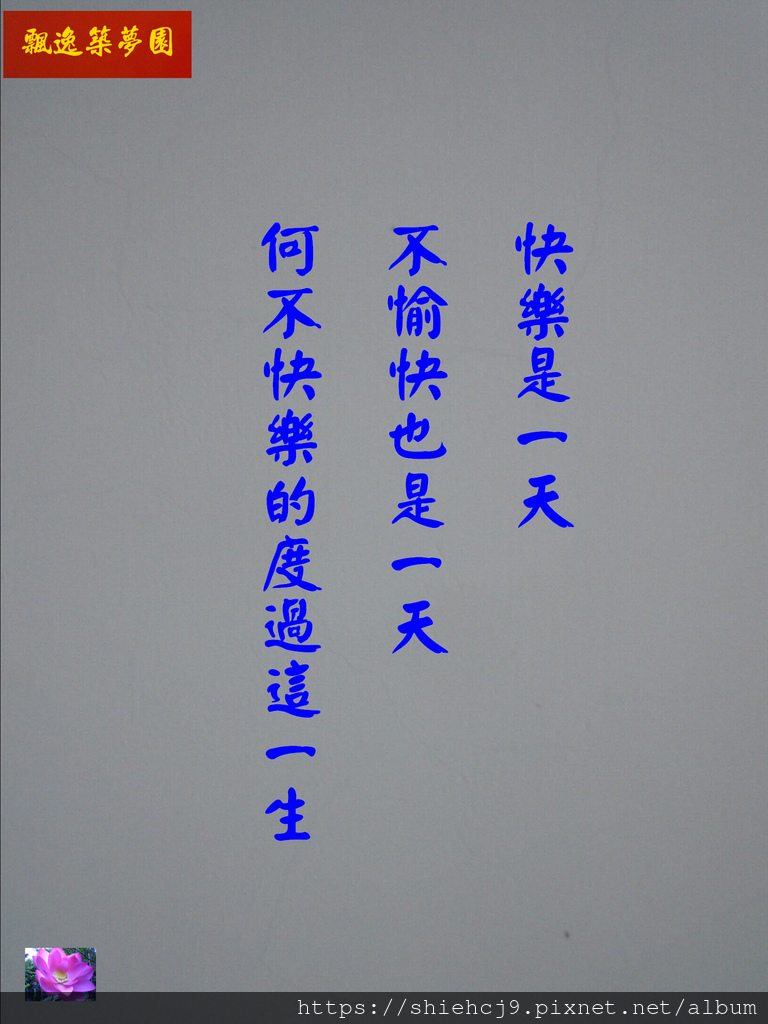 飄逸築夢園
快樂是一天
不愉快也是一天
何不快樂的度過這一生
https://shiehcj9.pixnet.net/album